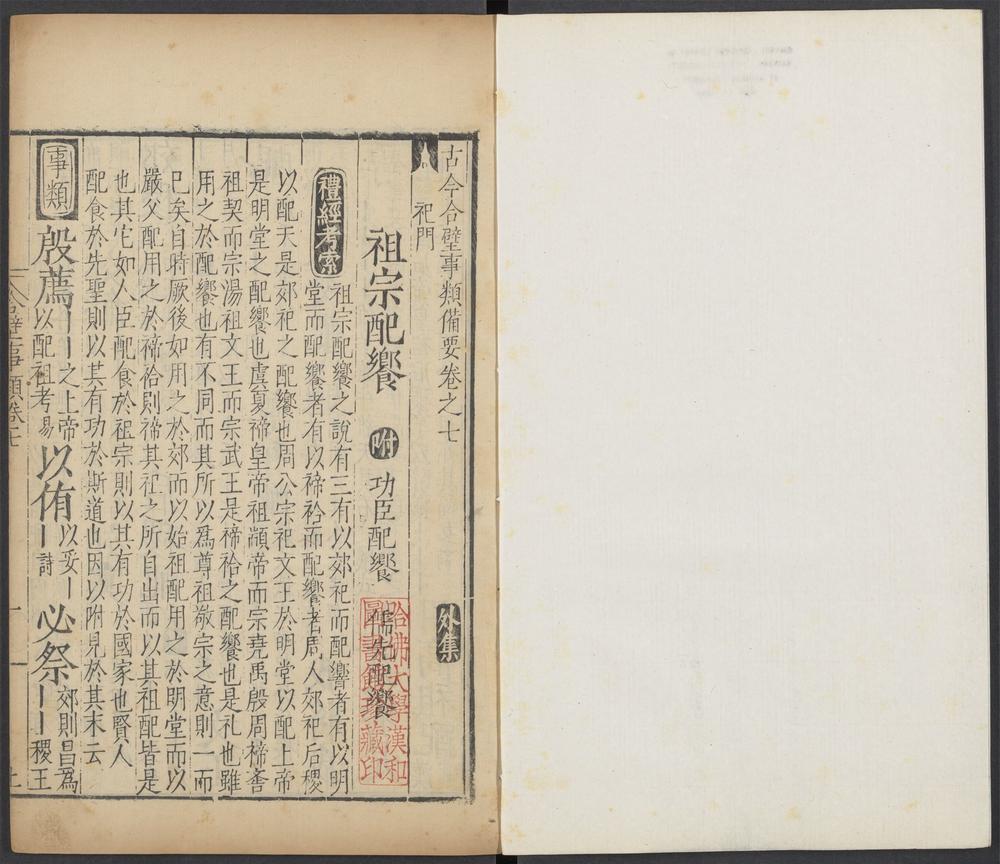 古今合璧事類備要卷之七
外集
祀門
祖宗配饗 附 功臣配饗 儒先配饗
哈佛大學漢和圖書館珍藏印
禮經考索
祖宗配饗之說有三有以郊祀而配饗者有以明
堂而配饗者有以禘祫而配饗者周人郊祀后稷
以配天是郊祀之配饗也周公宗祀文王於明堂以配上帝
是明堂之配饗也虞夏禘皇帝祖顓帝而宗堯禹殷周禘嚳
祖契而宗湯祖文王而宗武王是禘祫之配饗也是礼也雖
用之於配饗也有不同而其所以爲尊祖敬宗之意則一而
巳矣自時厥後如用之於郊而以始祖配用之於明堂而以
嚴父配用之於禘祫則禘其祖之所自出而以其祖配皆是
也其它如人臣配食於祖宗則以其有功於國家也賢人
配食於先聖則以其有功於斯道也因以附見於其末云
事類
殷薦｜｜之上帝以配祖考易 以侑｜以妥｜詩 必祭｜｜郊則曷爲｜稷王
合璧事類卷七
一